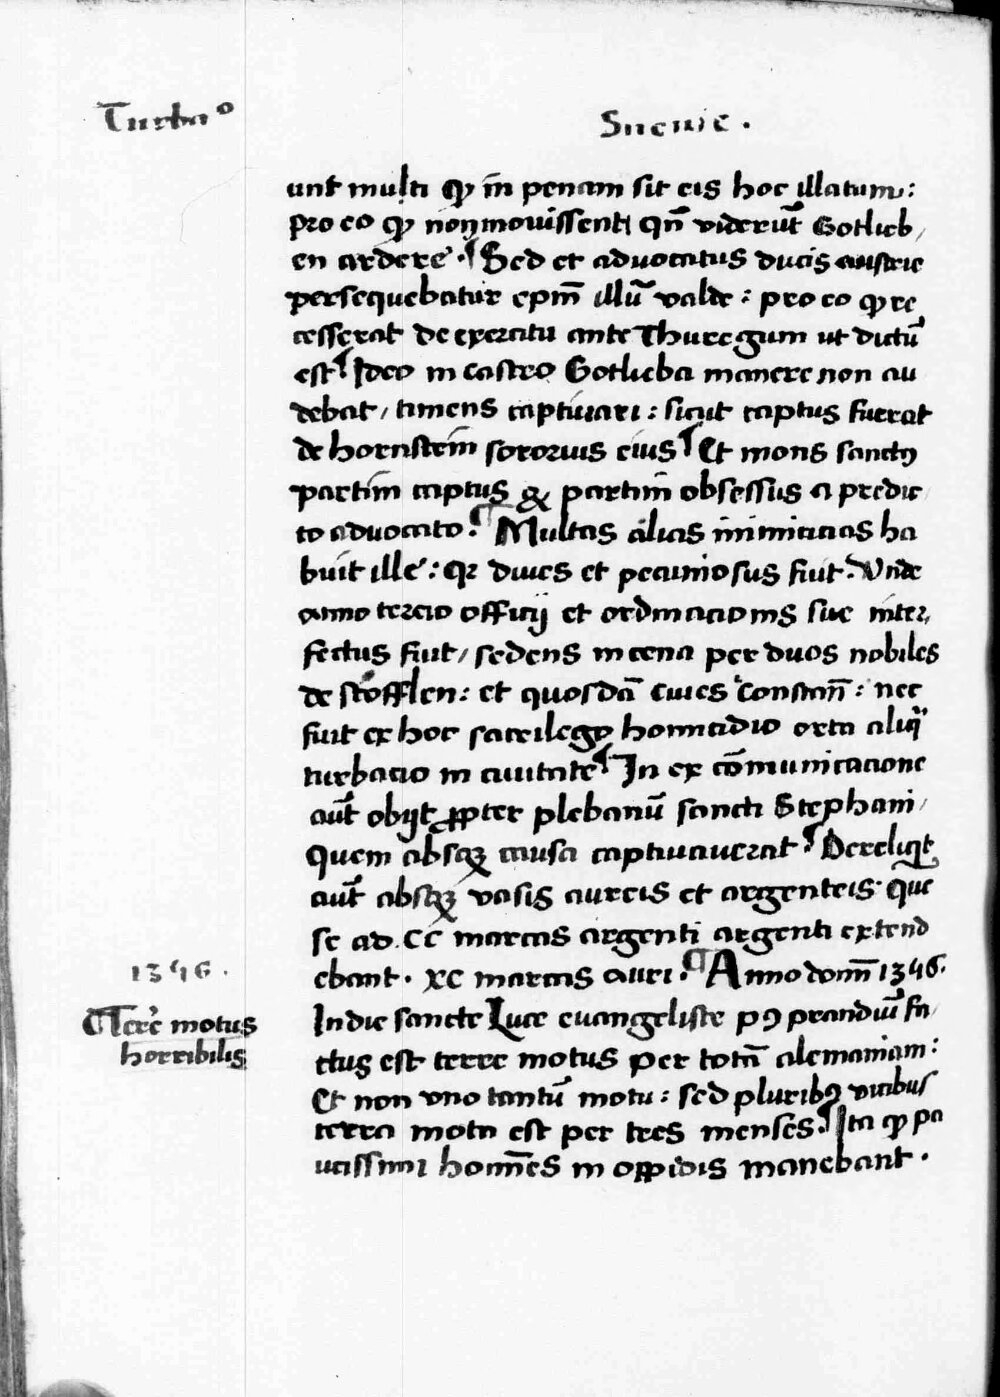 Turbaº Sueuie .
unt multi ꝙ in penam sit eis hoc illatum :
pro eo ꝙ non mouissent qn̄ viderūt Gotlieb/
en ardere . ¶ Sed et aduocatus ducis austrie
persequebatur ep̄m illū valde : pro eo ꝙ re
cesserat de exercitu ante Thuregum ut dictū
est ¶ Ideo in castro Gotlieba manere non au
debat / timens captiuari : sicut captus fuerat
de hornstein sororius eius ¶ Et mons sanctꝰ
partim captus & partim obsessus a predic
to aduocato . ¶ Multas alias inimicicias ha
buit ille : qꝛ diues et pecuniosus fuit . Vnde
anno tercio officij et ordinacionis sue inter/
fectus fuit / sedens in cena per duos nobiles
de stofflen : et quosdā ciues Constan̄ : nec
fuit ex hoc sacrilego homicidio orta aliq̄
turbacio in ciuitate ¶ In ex cōmunicacione
aūt obijt ꝓpter plebanū sancti Stephani /
Quem absqꝫ causa captiuauerat . ¶ Dereliqit
aūt absqꝫ vasis aureis et argenteis que
se ad . CC marcas argenti argenti extend
ebant . XC marcas auri . ¶ Anno domī 1346 .
In die sancte Luce euangeliste pꝰ prandiū fa/
ctus est terre motus per totā alemaniam :
Et non vno tantū motu : sed pluribꝰ vicibus
terra mota est per tres menses . ¶ Ita ꝙ pa
ucissimi homīes in oppidis manebant .
1346 .
¶ Terre motus
horribilis